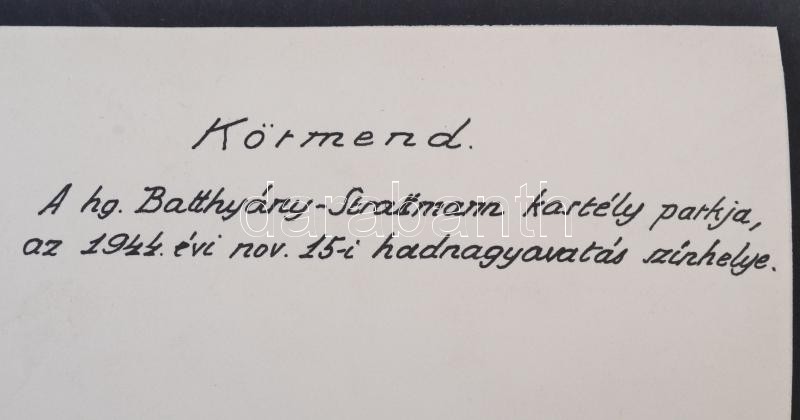 Körmend.
A hg. Batthyány-Strattmann kastély parkja,
az 1944. évi nov. 15-i hadnagyavatás színhelye.
darabanth